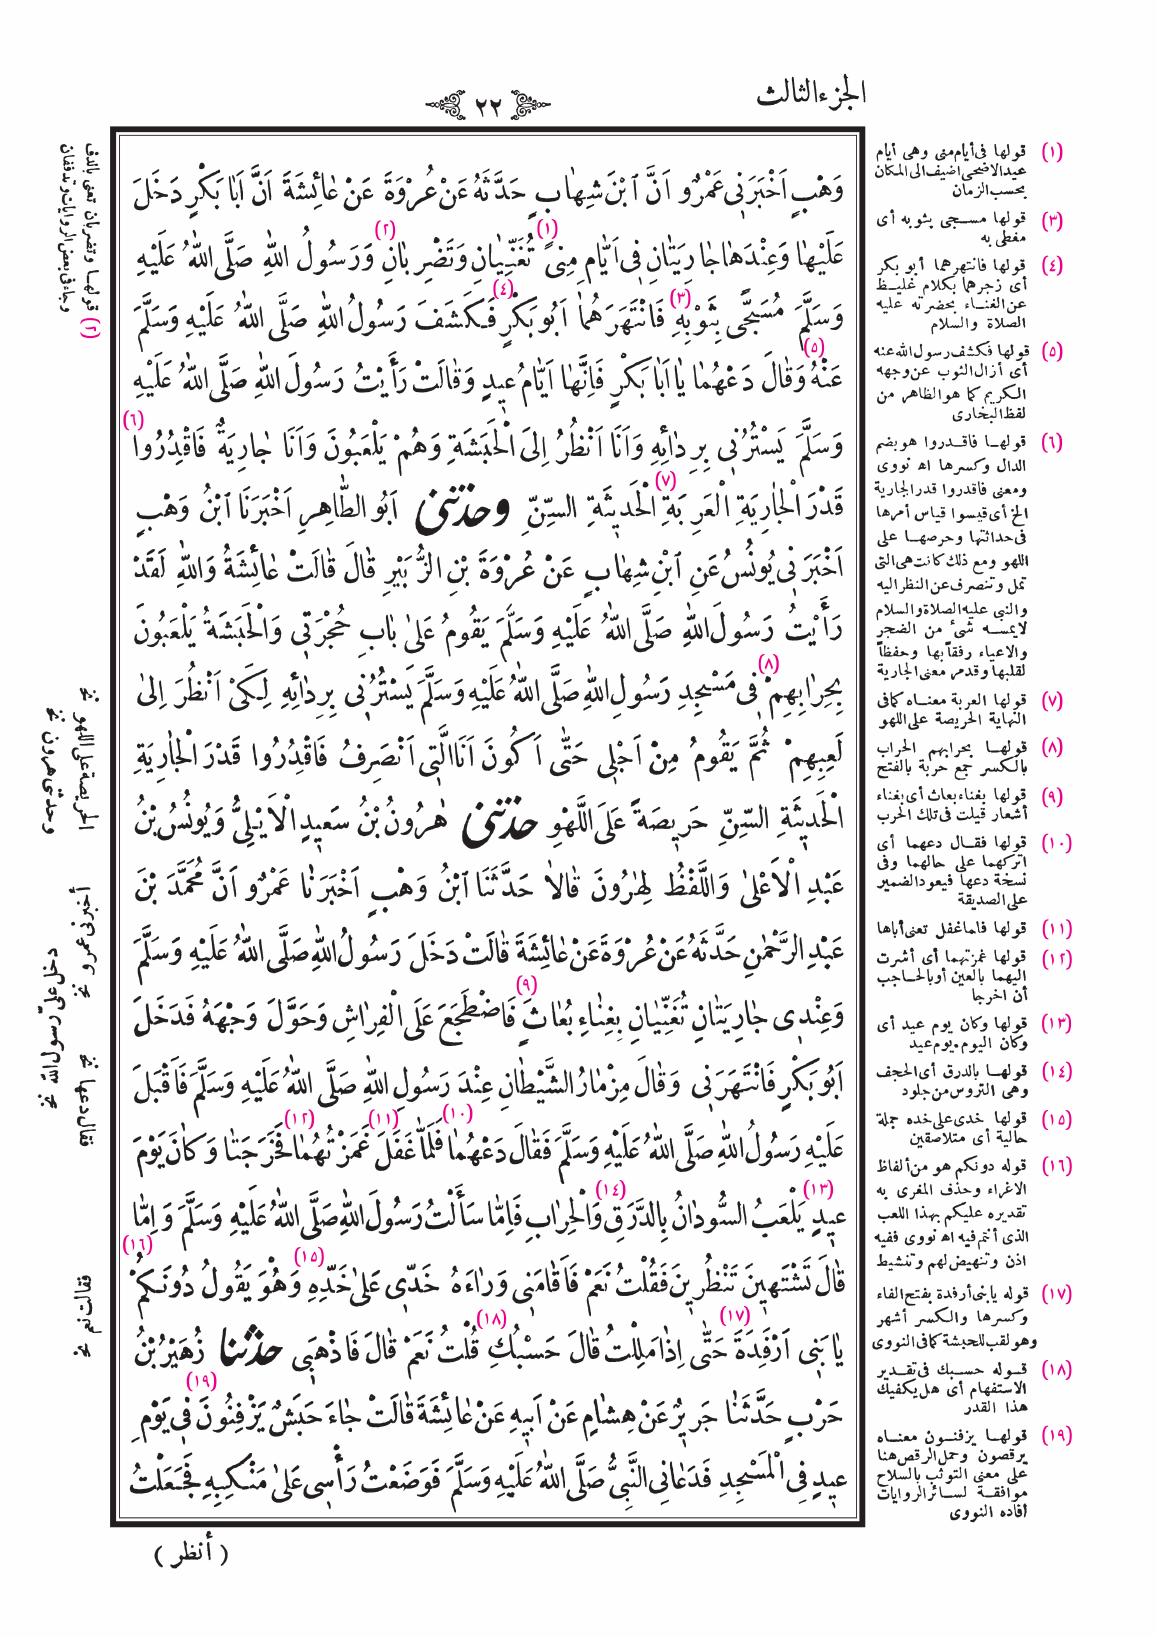 الجزء الثالث
٢٢
وَهْبٍ اَخْبَرَنِى عَمْرٌو اَنَّ ابْنَ شِهَابٍ حَدَّثَهُ عَنْ عُرْوَةَ عَنْ عَائِشَةَ اَنَّ اَبَا بَكْرٍ دَخَلَ
عَلَيْهَا وَعِنْدَهَا جَارِيَتَانِ فِى اَيَّامِ مِنىً (١) تُغَنِّيَانِ وَتَضْرِبَانِ (٢) وَرَسُولُ اللهِ صَلَّى اللهُ عَلَيْهِ
وَسَلَّمَ مُسَجًّى بِثَوْبِهِ (٣) فَانْتَهَرَهُمَا اَبُو بَكْرٍ (٤) فَكَشَفَ رَسُولُ اللهِ صَلَّى اللهُ عَلَيْهِ وَسَلَّمَ
عَنْهُ (٥) وَقَالَ دَعْهُمَا يَا اَبَا بَكْرٍ فَاِنَّهَا اَيَّامُ عِيدٍ وَقَالَتْ رَأَيْتُ رَسُولَ اللهِ صَلَّى اللهُ عَلَيْهِ
وَسَلَّمَ يَسْتُرُنِى بِرِدَائِهِ وَاَنَا اَنْظُرُ اِلَى الْحَبَشَةِ وَهُمْ يَلْعَبُونَ وَاَنَا جَارِيَةٌ فَاقْدُرُوا (٦)
قَدْرَ الْجَارِيَةِ الْعَرِبَةِ (٧) الْحَدِيثَةِ السِّنِّ وحدثنى اَبُو الطَّاهِرِ اَخْبَرَنَا ابْنُ وَهْبٍ
اَخْبَرَنِى يُونُسُ عَنِ ابْنِ شِهَابٍ عَنْ عُرْوَةَ بْنِ الزُّبَيْرِ قَالَ قَالَتْ عَائِشَةُ وَاللهِ لَقَدْ
رَأَيْتُ رَسُولَ اللهِ صَلَّى اللهُ عَلَيْهِ وَسَلَّمَ يَقُومُ عَلَى بَابِ حُجْرَتِى وَالْحَبَشَةُ يَلْعَبُونَ
بِحِرَابِهِمْ (٨) فِى مَسْجِدِ رَسُولِ اللهِ صَلَّى اللهُ عَلَيْهِ وَسَلَّمَ يَسْتُرُنِى بِرِدَائِهِ لِكَىْ اَنْظُرَ اِلَى
لَعِبِهِمْ ثُمَّ يَقُومُ مِنْ اَجْلِى حَتَّى اَكُونَ اَنَا الَّتِى اَنْصَرِفُ فَاقْدِرُوا قَدْرَ الْجَارِيَةِ
الْحَدِيثَةِ السِّنِّ حَرِيصَةً عَلَى اللَّهْوِ حدثنى هَرُونُ بْنُ سَعِيدٍ الْاَيْلِىُّ وَيُونُسُ بْنُ
عَبْدِ الْاَعْلَى وَاللَّفْظُ لِهَرُونَ قَالَا حَدَّثَنَا ابْنُ وَهْبٍ اَخْبَرَنَا عَمْرٌو اَنَّ مُحَمَّدَ بْنَ
عَبْدِ الرَّحْمٰنِ حَدَّثَهُ عَنْ عُرْوَةَ عَنْ عَائِشَةَ قَالَتْ دَخَلَ رَسُولُ اللهِ صَلَّى اللهُ عَلَيْهِ وَسَلَّمَ
وَعِنْدِى جَارِيَتَانِ تُغَنِّيَانِ بِغِنَاءِ بُعَاثَ (٩) فَاضْطَجَعَ عَلَى الْفِرَاشِ وَحَوَّلَ وَجْهَهُ فَدَخَلَ
اَبُو بَكْرٍ فَانْتَهَرَنِى وَقَالَ مِزْمَارُ الشَّيْطَانِ عِنْدَ رَسُولِ اللهِ صَلَّى اللهُ عَلَيْهِ وَسَلَّمَ فَاَقْبَلَ
عَلَيْهِ رَسُولُ اللهِ صَلَّى اللهُ عَلَيْهِ وَسَلَّمَ فَقَالَ دَعْهُمَا (١٠) فَلَمَّا غَفَلَ (١١) غَمَزْتُهُمَا (١٢) فَخَرَجَتَا وَكَانَ يَوْمَ
عِيدٍ (١٣) يَلْعَبُ السُّودَانُ بِالدَّرَقِ (١٤) وَالْحِرَابِ فَاِمَّا سَأَلْتُ رَسُولَ اللهِ صَلَّى اللهُ عَلَيْهِ وَسَلَّمَ وَاِمَّا
قَالَ تَشْتَهِينَ تَنْظُرِينَ فَقُلْتُ نَعَمْ فَاَقَامَنِى وَرَاءَهُ خَدِّى عَلَى خَدِّهِ (١٥) وَهُوَ يَقُولُ دُونَكُمْ (١٦)
يَا بَنِى اَرْفِدَةَ (١٧) حَتَّى اِذَا مَلِلْتُ قَالَ حَسْبُكِ (١٨) قُلْتُ نَعَمْ قَالَ فَاذْهَبِى حدثنا زُهَيْرُ بْنُ
حَرْبٍ حَدَّثَنَا جَرِيرٌ عَنْ هِشَامٍ عَنْ اَبِيهِ عَنْ عَائِشَةَ قَالَتْ جَاءَ حَبَشٌ يَزْفِنُونَ (١٩) فِى يَوْمِ
عِيدٍ فِى الْمَسْجِدِ فَدَعَانِى النَّبِىُّ صَلَّى اللهُ عَلَيْهِ وَسَلَّمَ فَوَضَعْتُ رَأْسِى عَلَى مَنْكِبِهِ فَجَعَلْتُ
( أنظر )
(١) قولها فى أيام منى وهى أيام
عيد الاضحى اضيف الى المكان
بحسب الزمان
(٣) قولها مسجى بثوبه أى
مغطى به
(٤) قولها فانتهرهما أبو بكر
أى زجرهما بكلام غليظ
عن الغناء بحضرته عليه
الصلاة والسلام
(٥) قولها فكشف رسول الله عنه
أى أزال الثوب عن وجهه
الكريم كما هو الظاهر من
لفظ البخارى
(٦) قولها فاقدروا هو بضم
الدال وكسرها اه نووى
ومعنى فاقدروا قدر الجارية
الخ أى قيسوا قياس أمرها
فى حداثتها وحرصها على
اللهو ومع ذلك كانت هى التى
تمل وتنصرف عن النظر اليه
والنبى عليه الصلاة والسلام
لا يمسه شىء من الضجر
والاعياء رفقاً بها وحفظاً
لقلبها وقد مر معنى الجارية
(٧) قولها العربة معناه كما فى
النهاية الحريصة على اللهو
(٨) قولها بحرابهم الحراب
بالكسر جمع حربة بالفتح
(٩) قولها بغناء بعاث أى بغناء
أشعار قيلت فى تلك الحرب
(١٠) قولها فقال دعهما أى
اتركهما على حالهما وفى
نسخة دعها فيعود الضمير
على الصديقة
(١١) قولها فلما غفل تعنى أباها
(١٢) قولها غمزتهما أى أشرت
اليهما بالعين أو بالحاجب
أن اخرجا
(١٣) قولها وكان يوم عيد أى
وكان اليوم يوم عيد
(١٤) قولها بالدرق أى الحجف
وهى التروس من جلود
(١٥) قولها خدى على خده جملة
حالية أى متلاصقين
(١٦) قوله دونكم هو من ألفاظ
الاغراء وحذف المغرى به
تقديره عليكم بهذا اللعب
الذى أنتم فيه اه نووى ففيه
اذن وتنهيض لهم وتنشيط
(١٧) قوله يا بنى أرفدة بفتح الفاء
وكسرها والكسر أشهر
وهو لقب للحبشة كما فى النووى
(١٨) قوله حسبك فى تقدير
الاستفهام أى هل يكفيك
هذا القدر
(١٩) قولها يزفنون معناه
يرقصون وحمل الرقص هنا
على معنى التوثب بالسلاح
موافقة لسائر الروايات
أفاده النووى
(٢) قولها وتضربان تعنى بالدف
وجاء فى بعض الروايات وتدففان
الحريصة على اللهو نخ
وحدثنى هرون نخ
أخبرنى عمرو نخ
دخل علىّ رسول الله نخ
فقال دعها نخ
فقالت نعم نخ